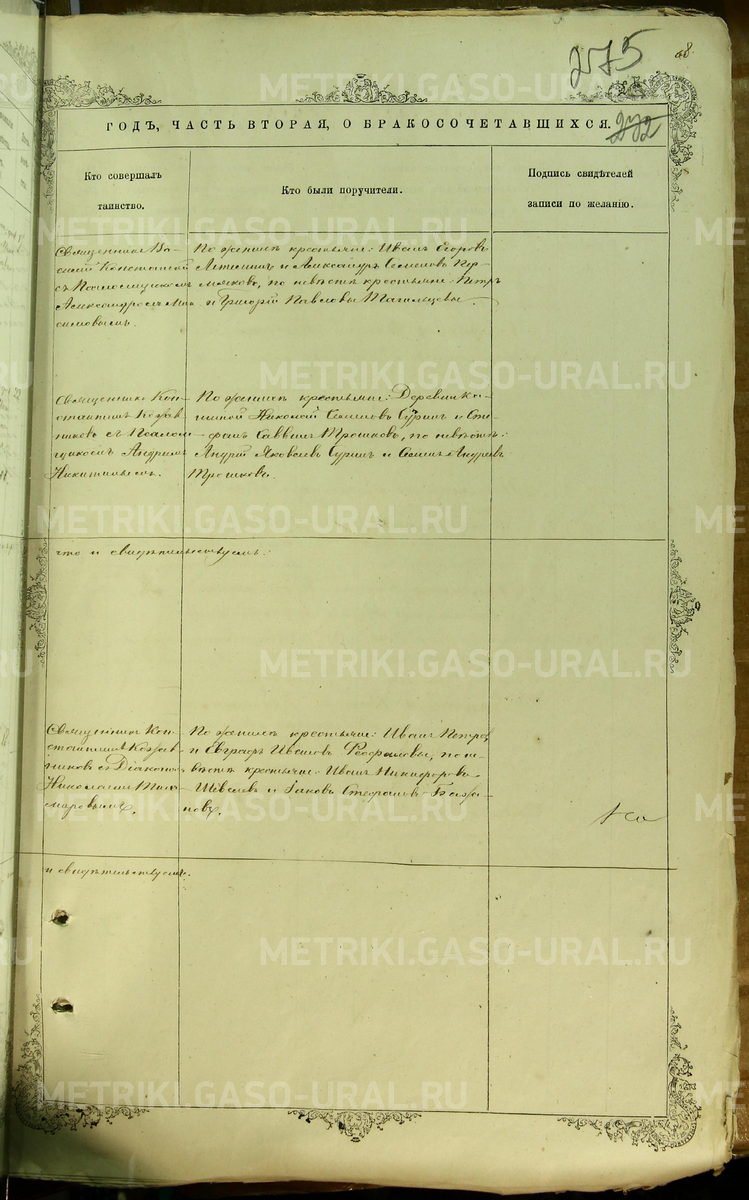 275
68.
ГОДЪ, ЧАСТЬ ВТОРАЯ, О БРАКОСОЧЕТАВШИХСЯ.
272
Кто совершалъ
таинство.
Кто были поручители.
Подпись свидѣтелей
записи по желанію.
Священникъ Ва-
силій
съ Псаломщикомъ
Александромъ Мак-
симовымъ.
По женихѣ крестьяне: Иванъ Егоровъ
и Александръ Семеновъ
по невѣстѣ крестьяне: Петръ
и Григорій Павловы Тагильцевы.
Священникъ Кон-
стантинъ
съ Псалом-
щикомъ Андреемъ
Никитинымъ.
По женихѣ крестьяне: Деревни
Николай Семеновъ Суринъ и Сте-
фанъ Саввинъ Трошковъ, по невѣстѣ:
Андрей Яковлевъ Суринъ и Семенъ Андреевъ
Трошковъ.
что и свидѣтельствуемъ.
Священникъ Кон-
стантинъ
съ Діакономъ
Николаемъ
По женихѣ крестьяне: Иванъ Петровъ
и Евграфъ Ивановъ по не-
вѣстѣ крестьяне: Иванъ Никифоровъ
и Яковъ Стефановъ
и свидѣтельствуемъ.
METRIKI.GASO-URAL.RU